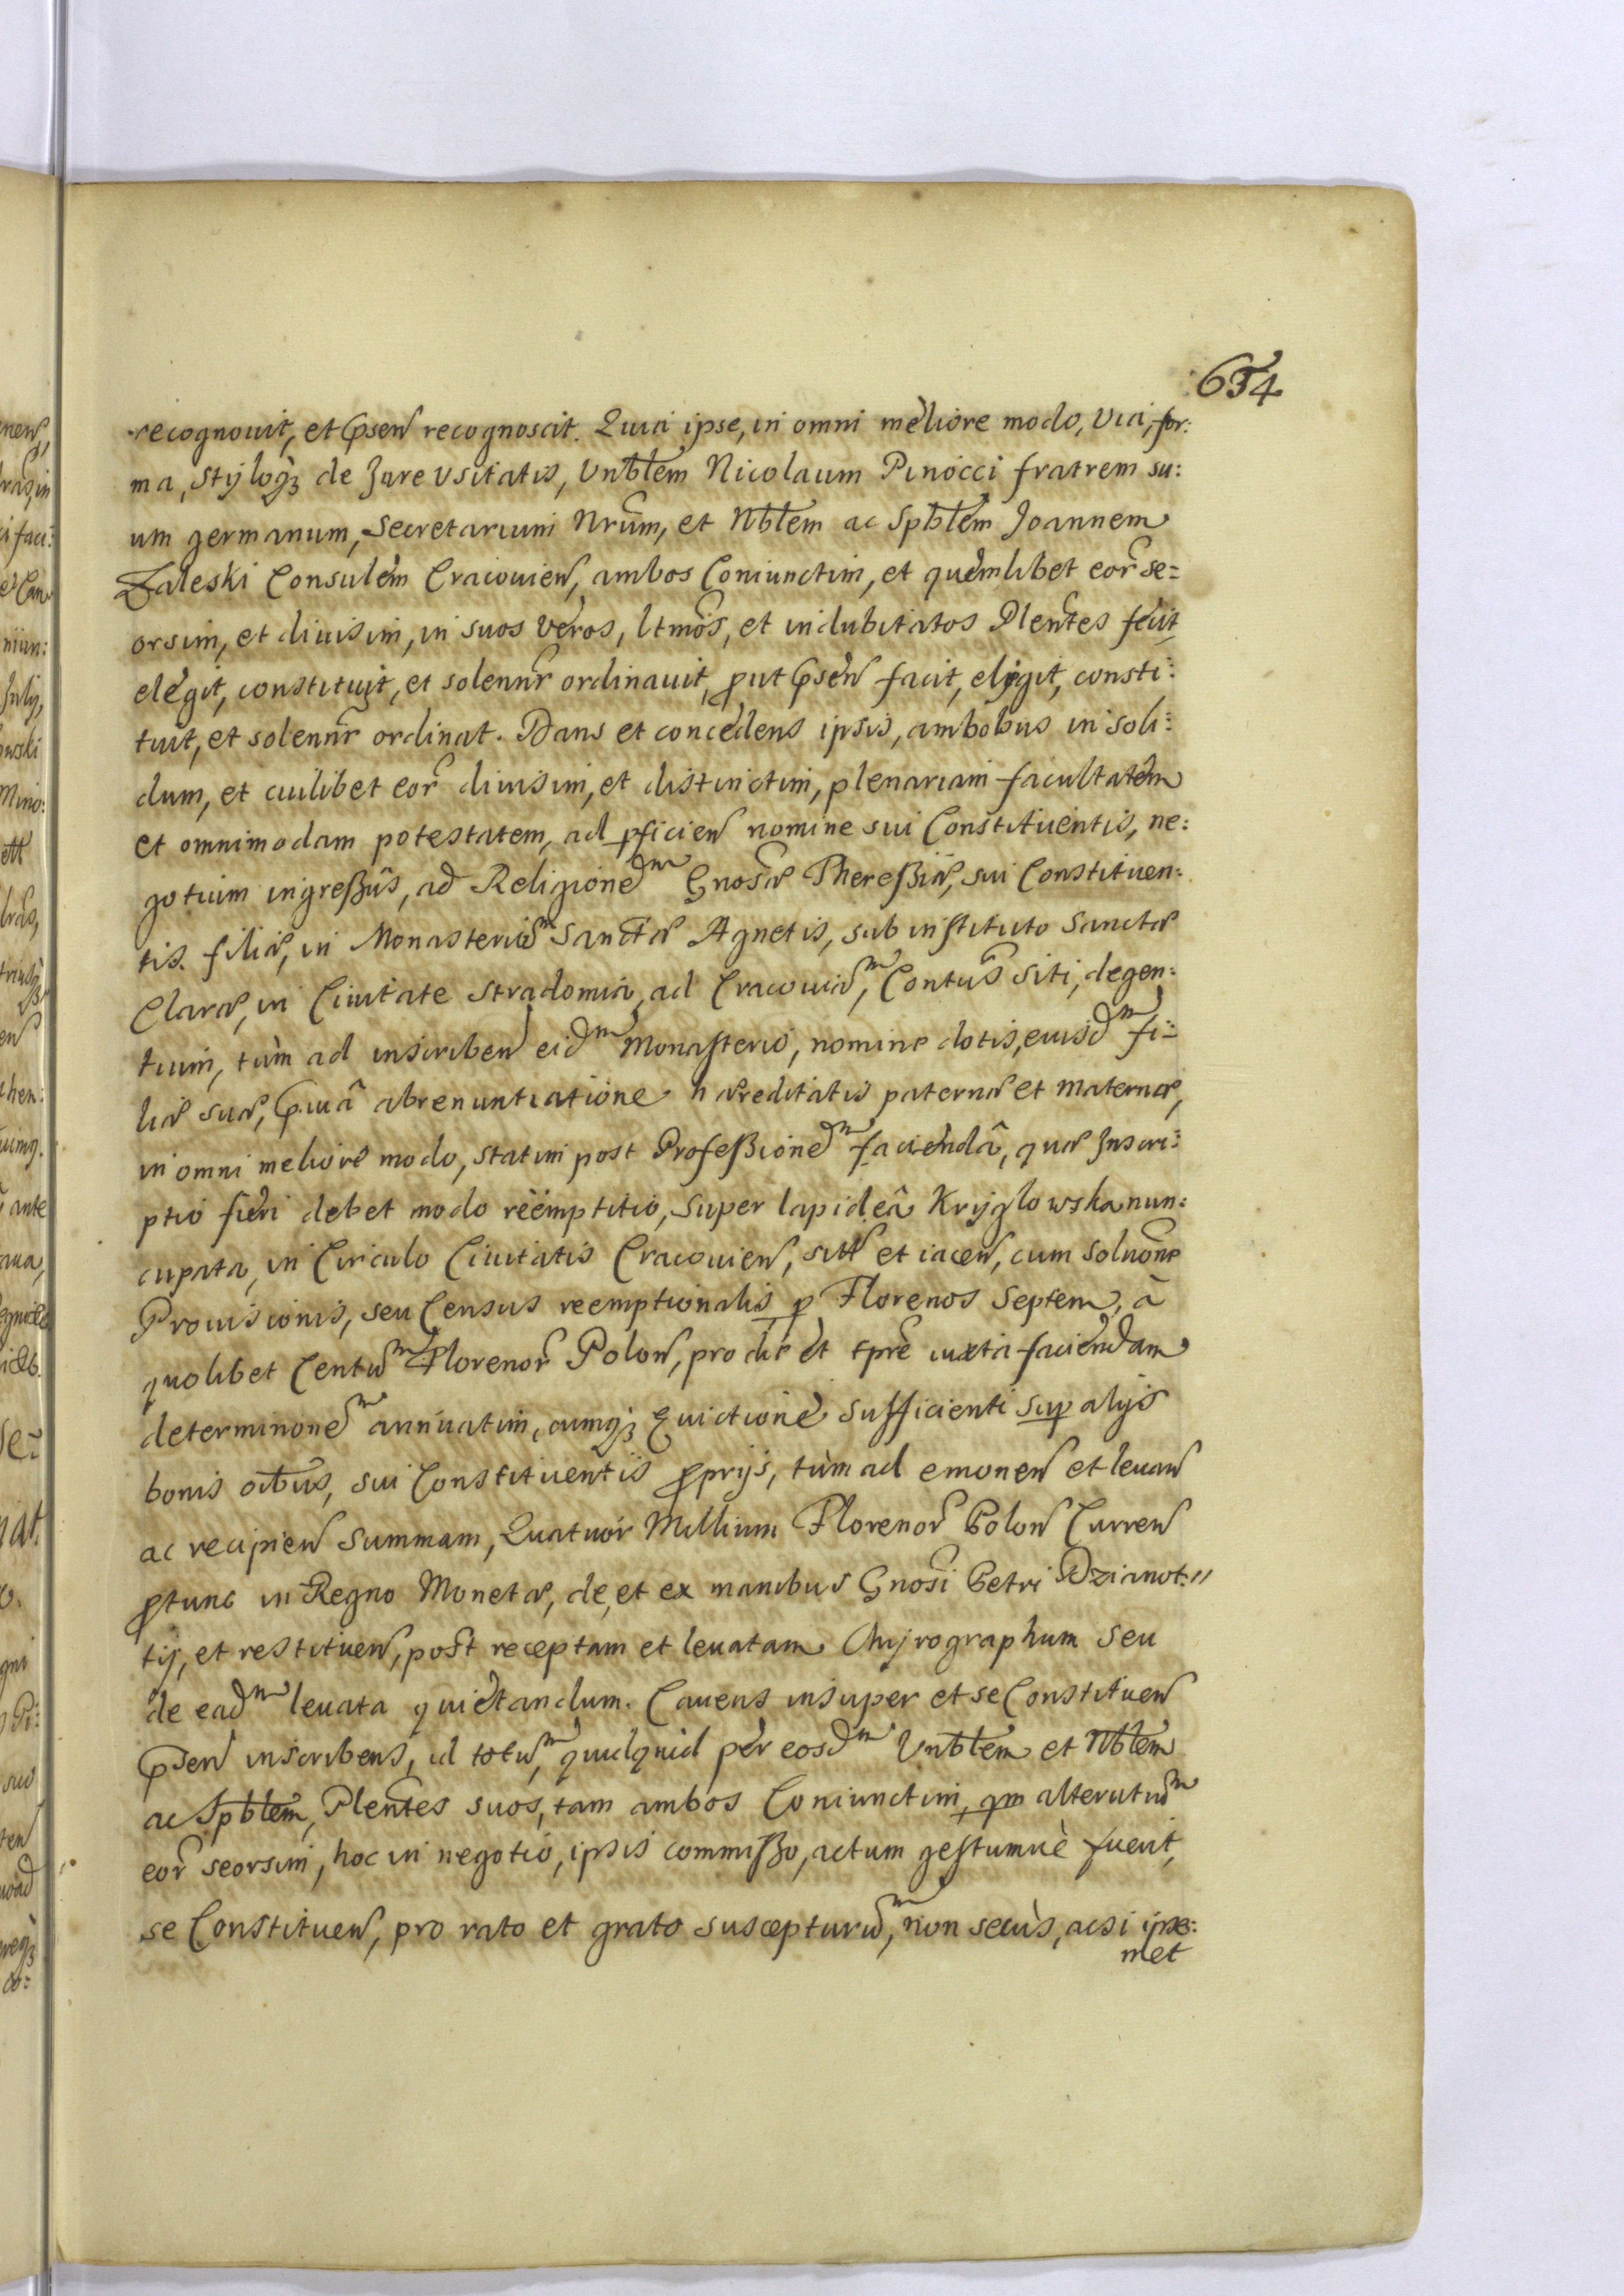 654
recognouit, et p̃sen̄ recognoscit. Quia ipse, in omni meliore modo, via, for:
ma, stÿloq̃ȝ de Jure vsitatis, Vrībtlem Nicolaum Pinocci fratrem su:
um germanum, Secretarium Nrũm, et Nbtlem ac Spbtlem Joannem
Zaleski Consulem Cracouien̄, ambos Coniunctim, et quemlibet eor̃ se=
orsim, et diuisim, in suos veros, ltmõs, et indubitatos Plen̄tes fecit,
elegit, constituit, et solenñr ordinauit, ꝓut p̃sen̄ facit, eligit, consti:
tuit, et solenñr ordinat. Dans et concedens ipsis, ambobus in soli:
dum, et cuilibet eor̃ diuisim, et distinctim, plenariam facultatem
et omnimodam potestatem, ad ꝑficien̄ nomine sui Constituentis, ne:
gotium ingreßus, ad Religionem Gnosæ Thereßiæ, sui Constituen:
tis. filiæ, in Monasterium Sanctæ Agnetis, sub instituto Sanctæ
Claræ, in Ciuitate Stradomia, ad Cracouiam, Contus̃ siti, degen:
tium, tùm ad inscriben̄ eidm Monasterio, nomine dotis, eiusdm fi:
liæ suæ, p̃uiâ abrenuntiatione hæreditatis paternæ et maternæ,
in omni meliore modo, statim post Profeßionem faciendâ, quæ Inscri:
ptio fieri debet modo reëmptitio, super lapideâ Krÿglowska nun:
cupata, in Circulo Ciuitatis Cracouien̄, sitt̃ et iacen̄, cum solũone
Prouisionis, seu Census reemptionalis ꝑ Florenos Septem, à
quolibet Centum Florenor̃ Polon̄, pro die et tpre iuxta faciendam
determinonem annuatim, cumq̃ȝ Euictione sufficienti suꝑ alijs
bonis oibus, sui Constituentis ꝓprijs, tùm ad emonen̄ et leuan̄
ac recipien̄ Summam, Quatuor Millium Florenor̃ Polon̄ Curren̄
ꝓtunc in Regno Monetæ, de, et ex manibus Gnosi Petri Dzianot:
tij, et restituen̄, post receptam et leuatam Chyrographum seu
de eadm leuata quietandum. Cauens insuper et se Constituen̄
p̃sen̄ inscribens, id totum, quidquid per eosdm Vrībtlem et Nbtlem
ac Spbtlem, Plen̄tes suos, tam ambos Coniunctim, qm alterutrum
eor̃ seorsim, hoc in negotio, ipsis commißo, actum gestumuè fuerit,
se Constituen̄, pro rato et grato suscepturum, non secùs, acsi ipse:
met